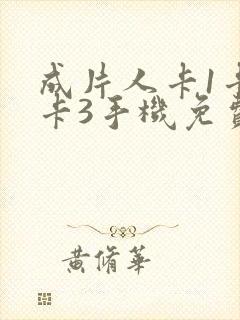 成片人卡1卡
卡3手機免費
黃脩華